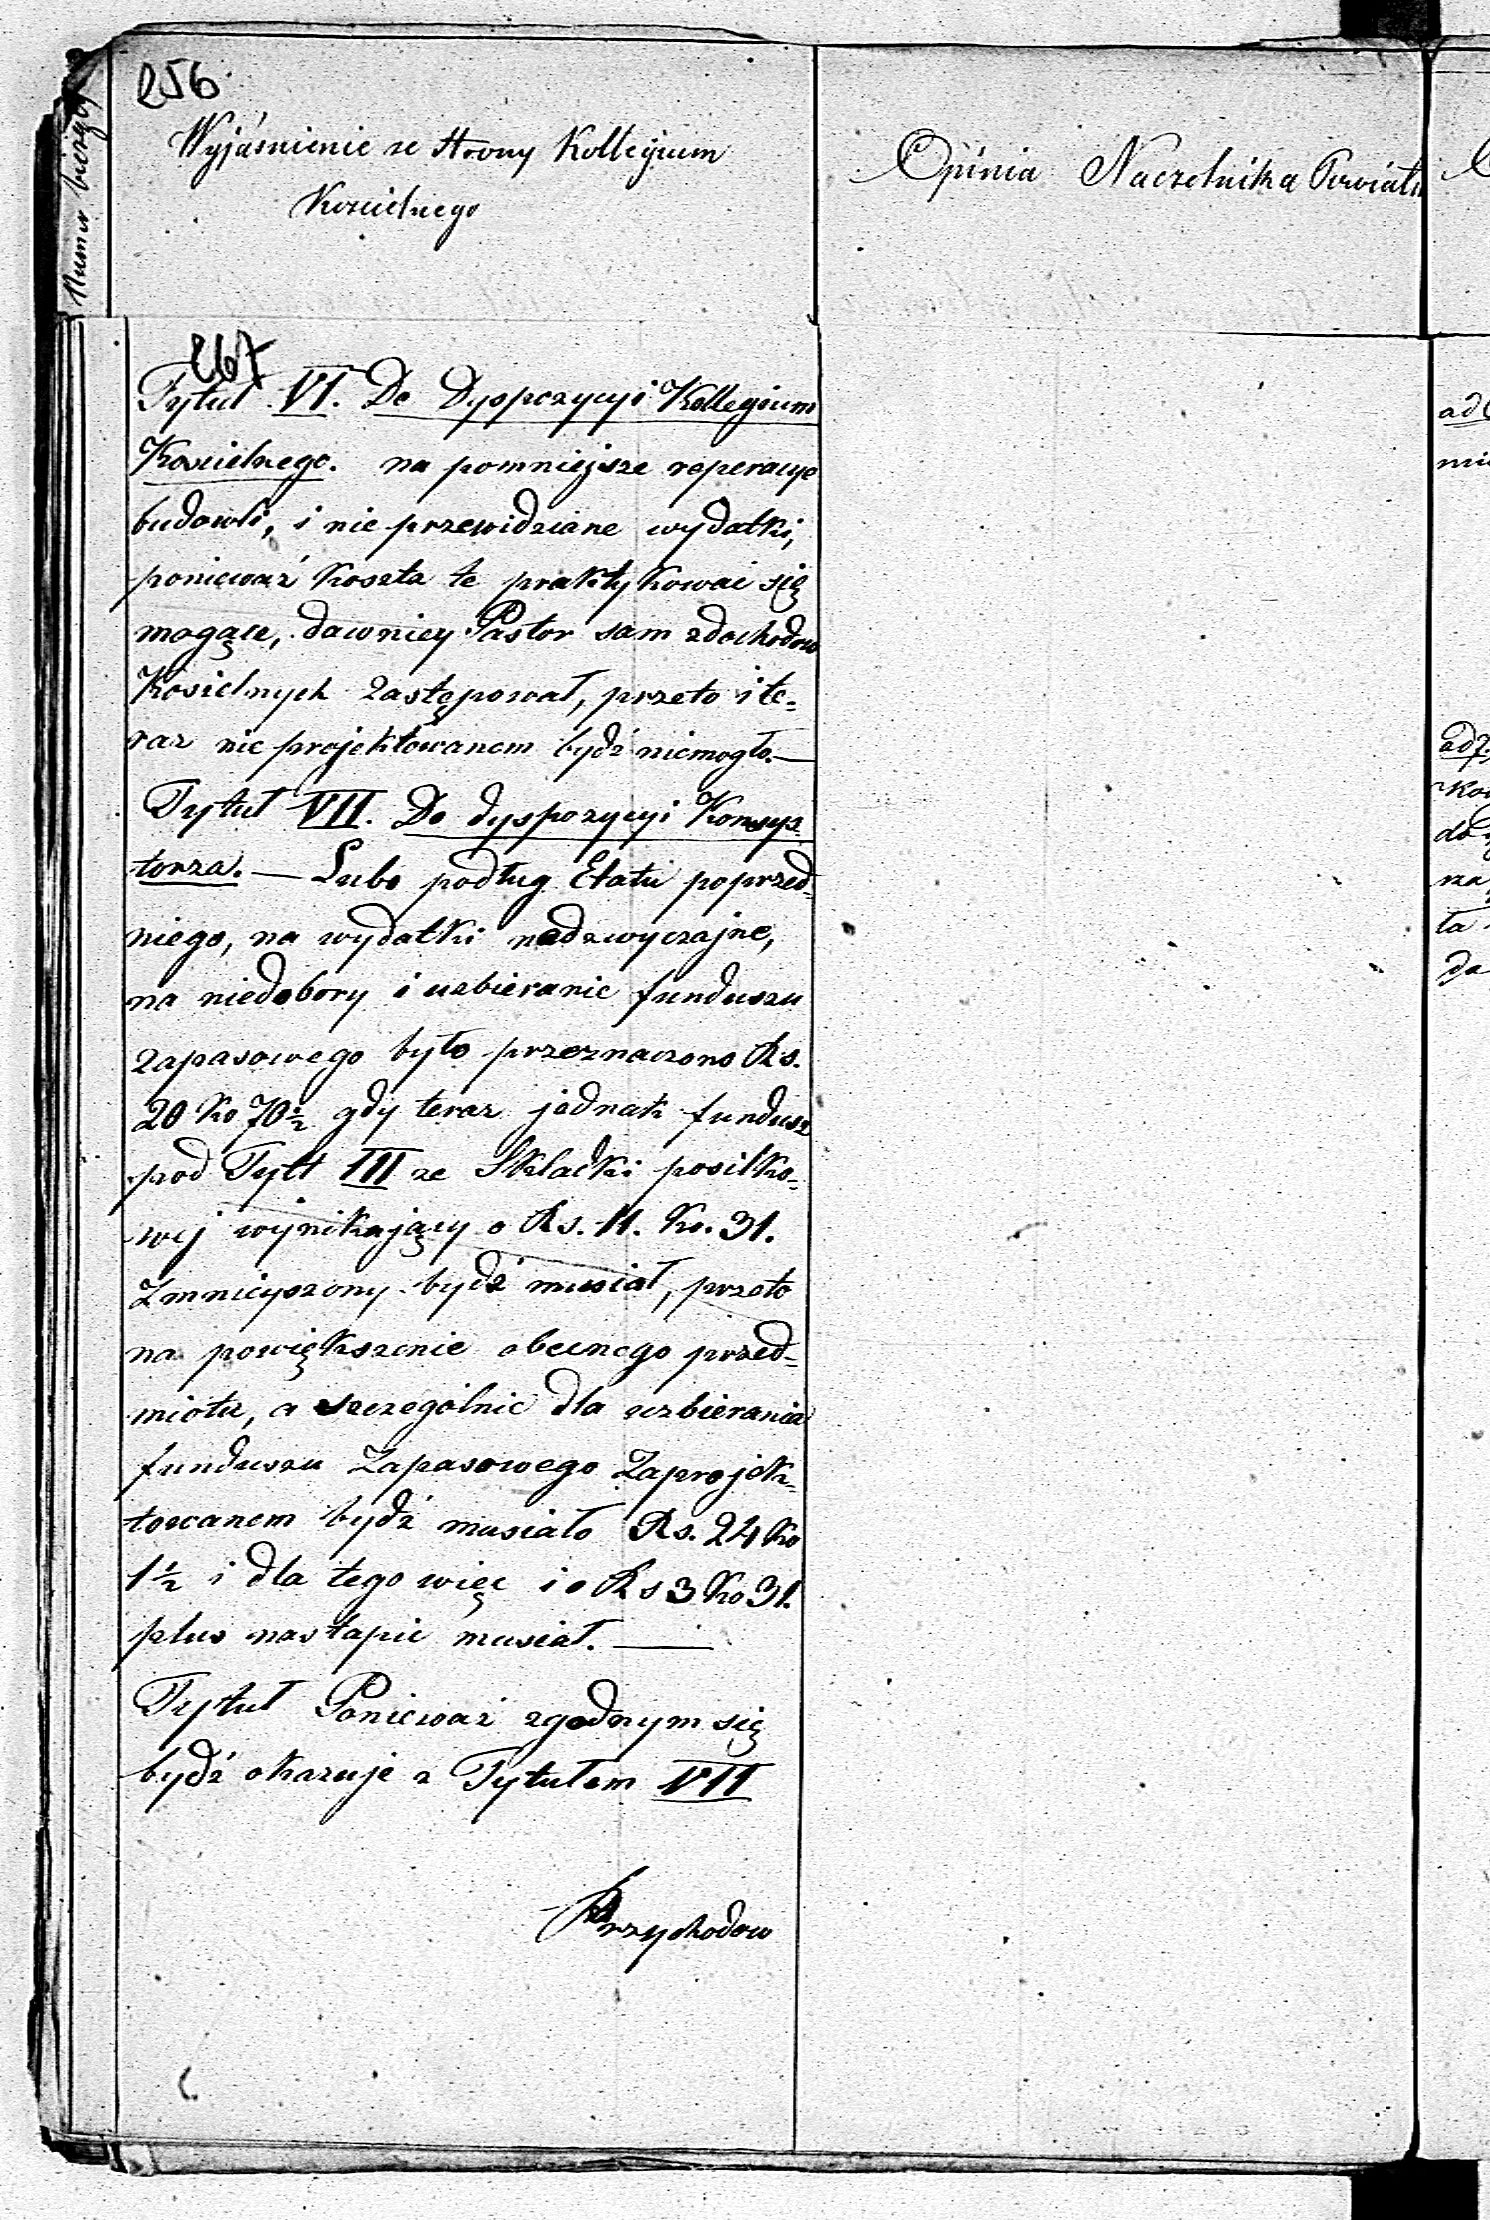 256
Numer bieżący
Wyjáśnienie ze Strony Kollegium
Kościelnego
Opinia Naczelnika Powiatu
267
Tytuł VI. Do Dyspozycyi Kollegium
Koscielnego. na pomniejsze reperacye
budowli, i nie przewidziane wydatki,
ponieważ koszta te praktykować się
mogące, dawniey Pastor sam zdochodow
Kościelnych zastępował, przeto i te-
raz nie projektowanem bydź niemogło.—
Tytuł VII. Do dyspozycyi Konsys-
torza. — Lubo podług Etatu poprzed-
niego, na wydatki nadzwyczajne,
na niedobory i uzbieranie funduszu
zapasowego było przeznaczono Rs.
20 Ko 70½ gdy teraz jednak fundusz
pod Tytł III ze Składki posiłko-
wej wynikający o Rs. 11. Ko. 31.
Zmnieyszony bydź musiał, przeto
na powiększenie obecnego przed-
miotu, a szczególnie dla uzbierania
funduszu Zapasowego Zaprojek-
towanem bydź musiało Rs. 24 Ko
1½ i dla tego więc i o Rs 3 Ko 31.
plus nastąpić musiał. —
Tytuł Ponieważ zgodnym się
bydź okazuje z Tytułem VII
Przychodow
ad
ad 7.
ta
da